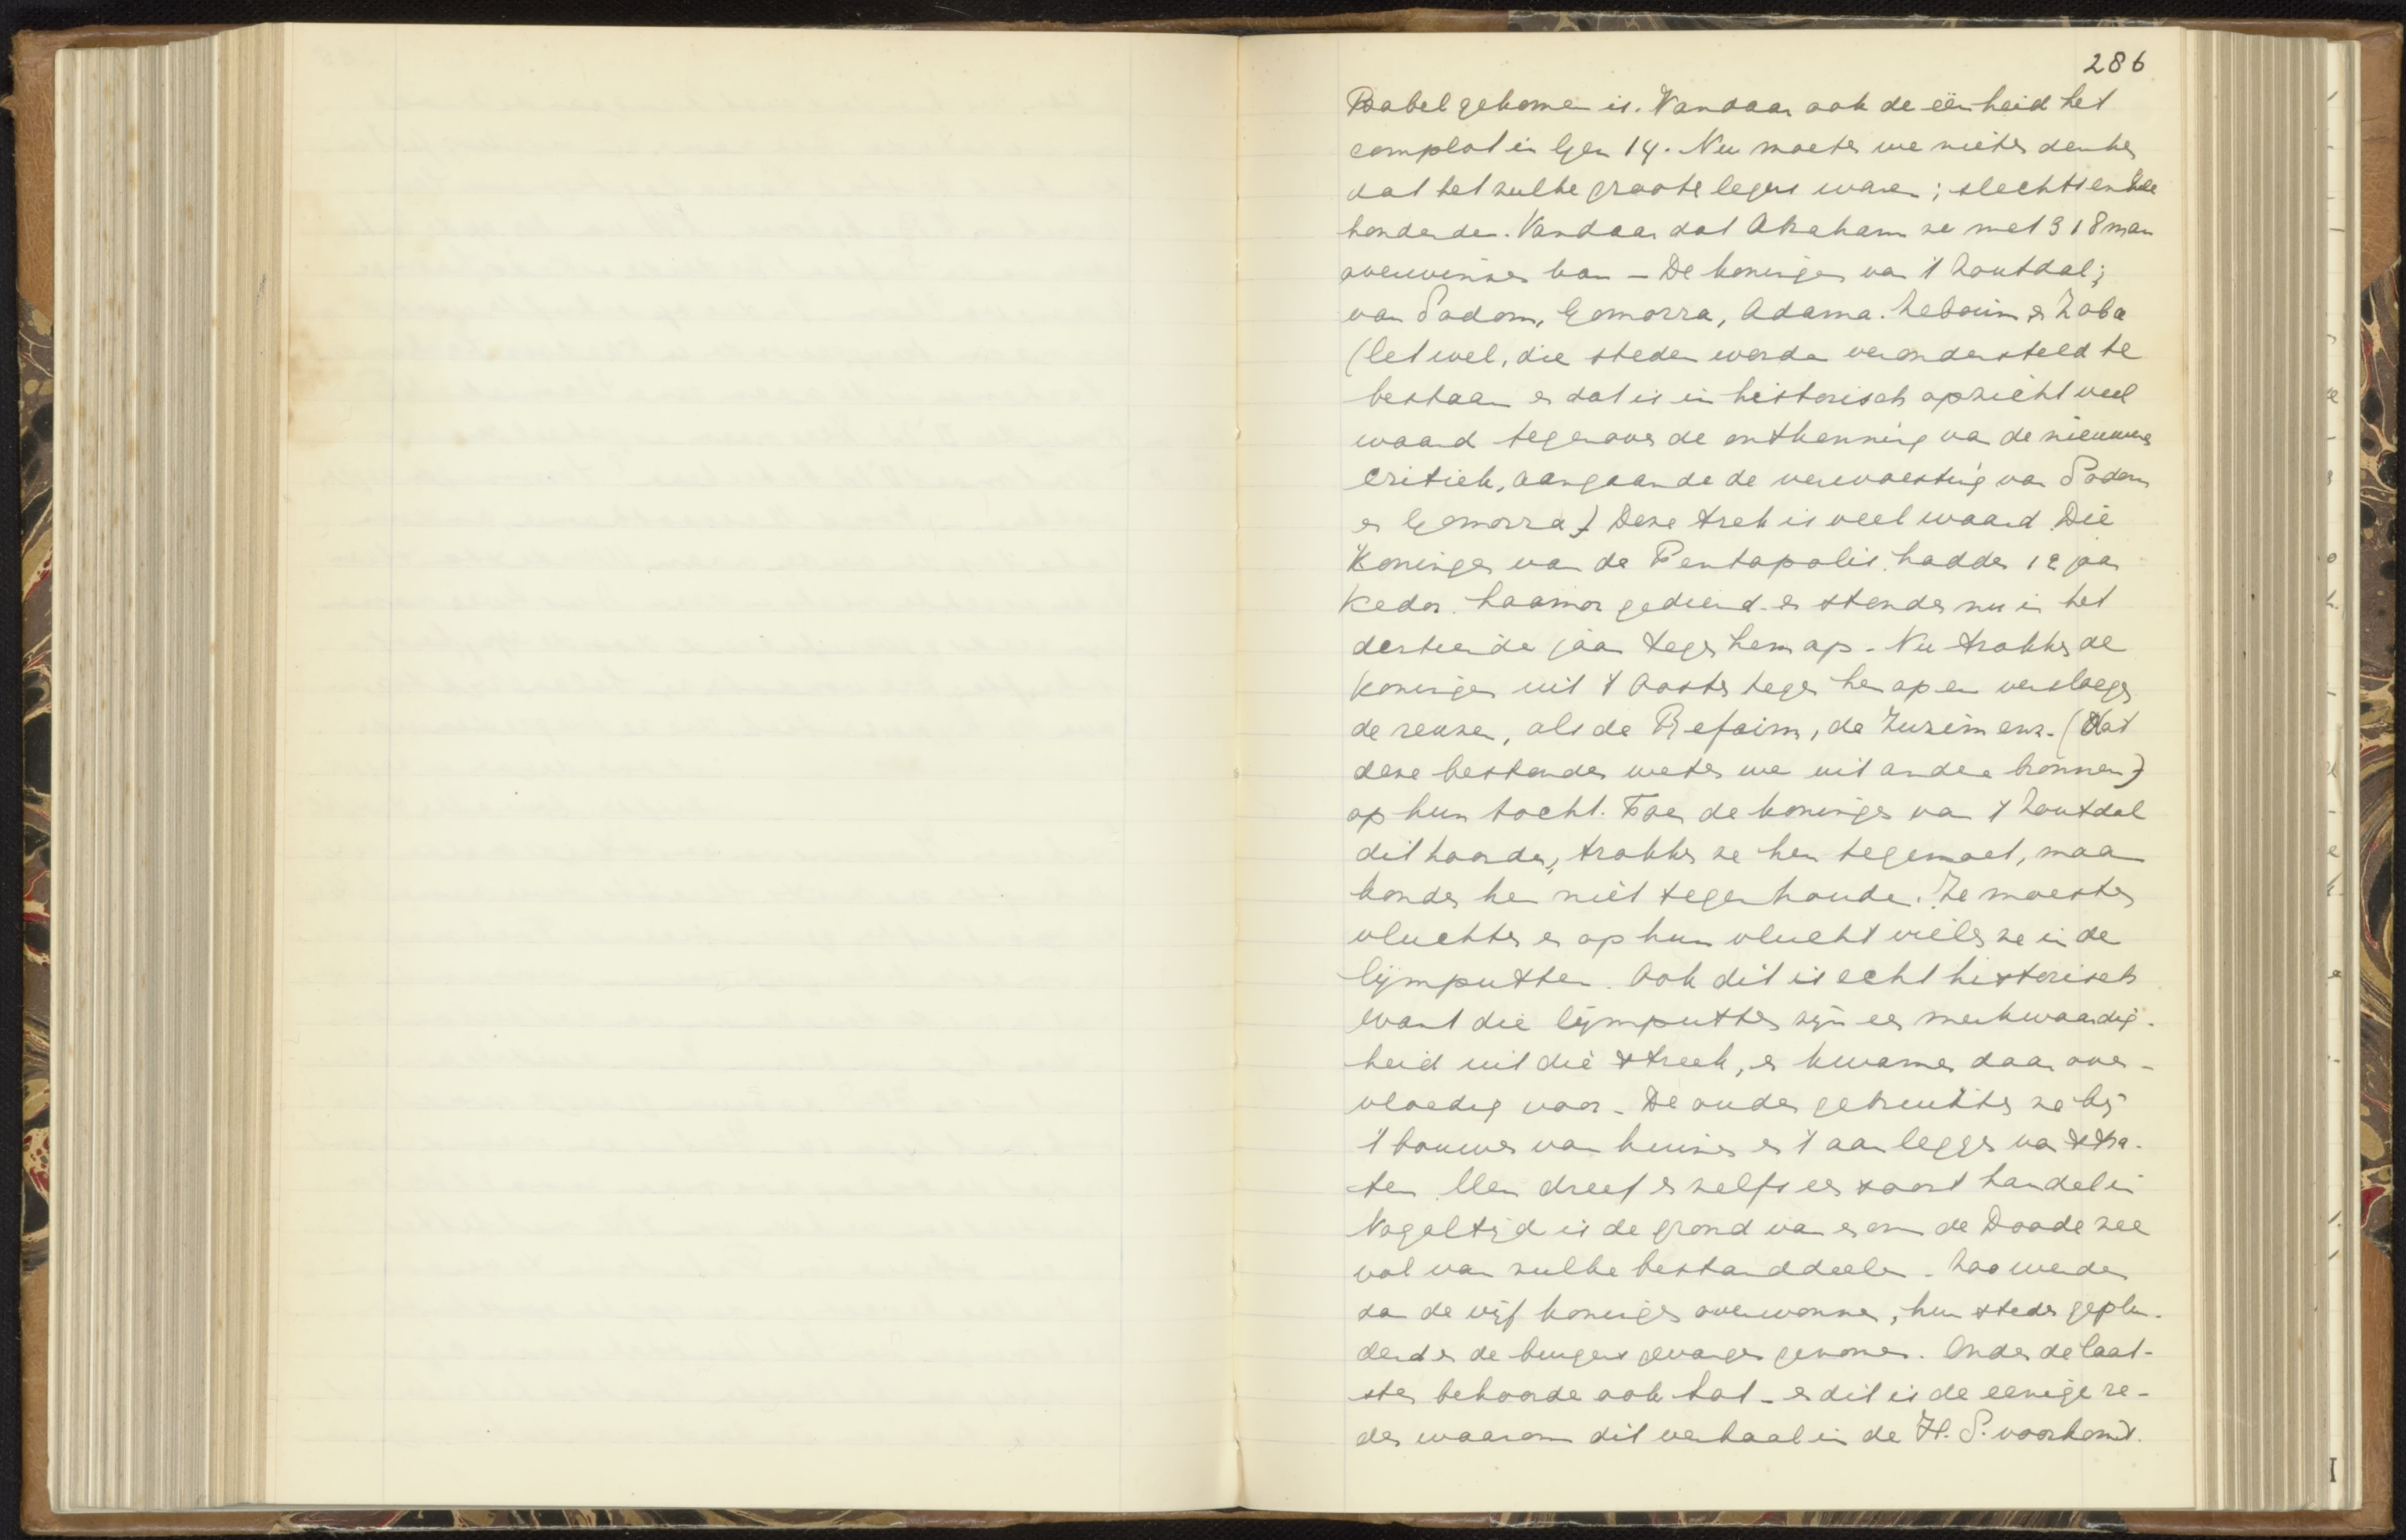 286
Babel gekomen is. Vandaar ook de eenheid het
complot in Gen 14. Nu moeten we niet denken
dat het zulke groote legers waren; slechts enkele
honderden. Vandaar dat Abraham ze met 318 man
overwinnen kan - De koningen van 't Zoutdal;
van Sodom, Gomorra, Adama. Zeboim en Zoba
(let wel, die steden worden verondersteld te
bestaan en dat is in historisch opzicht veel
waard tegenover de ontkenning van de nieuwere
critiek, aangaande de verwoesting van Sodom
en Gomorra) Deze trek is veel waard. Die
Koningen van de Pentapolis hadden 12 jaar
Kedor Laomor gediend en stonden nu in het
dertiende jaar tegen hem op. Nu trokken de
koningen uit 't Oosten tegen hen op en versloegen
de reuzen, als de Refaim, de Zuzim enz. (Dat
deze bestonden weten we uit andere bronnen)
op hun tocht. Toen de koningen van 't Zoutdal
dit hoorden, trokken ze hen tegemoet, maar
konden hen niet tegenhouden. Ze moesten
vluchten en op hun vlucht vielen ze in de
lijmputten. Ook dit is echt historisch
want die lijmputten zijn een merkwaardig-
heid uit die streek, en kwamen daar over-
vloedig voor. De ouden gebruikten ze bij
't bouwen van huizen en 't aanleggen van stra-
ten. Men dreef er zelfs een soort handel in
Nogaltijd is de grond van en om de Doode zee
vol van zulke bestanddeelen. Zoo werden
dan de vijf koningen overwonnen, hun steden geplun-
derd en de burgers gevangen genomen. Onder de laat-
sten behoorde ook Lot - en dit is de eenige re-
den waarom dit verhaal in de H. S. voorkomt.